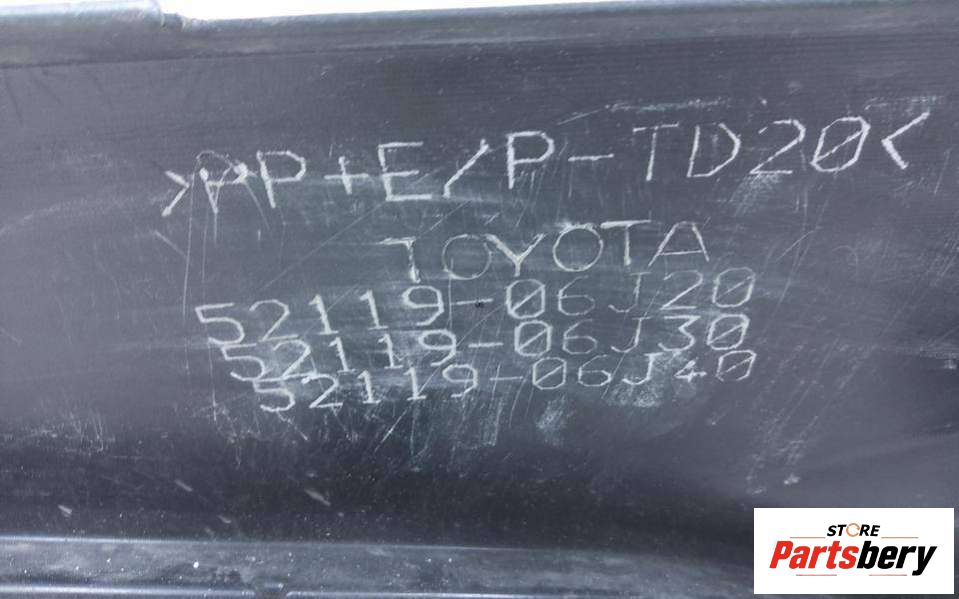 >PP+E/P-TD20<
TOYOTA
52119-06J20
52119-06J30
52119-06J40
STORE
Partsbery